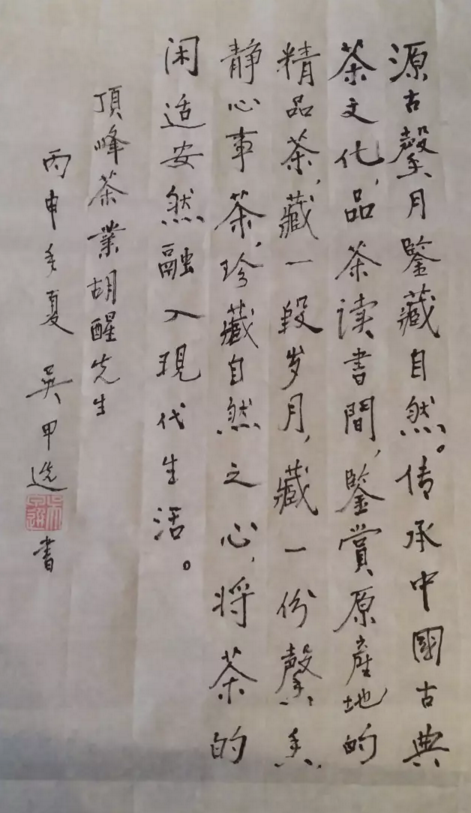 源古馨月鑒藏自然。传承中國古典
茶文化，品茶读書間，鑒賞原產地的
精品茶，藏一段岁月，藏一份馨香
靜心事茶，珍藏自然之心，将茶的
闲适安然融入現代生活。
頂峰茶業胡醒先生
丙申年夏 吴甲选 書